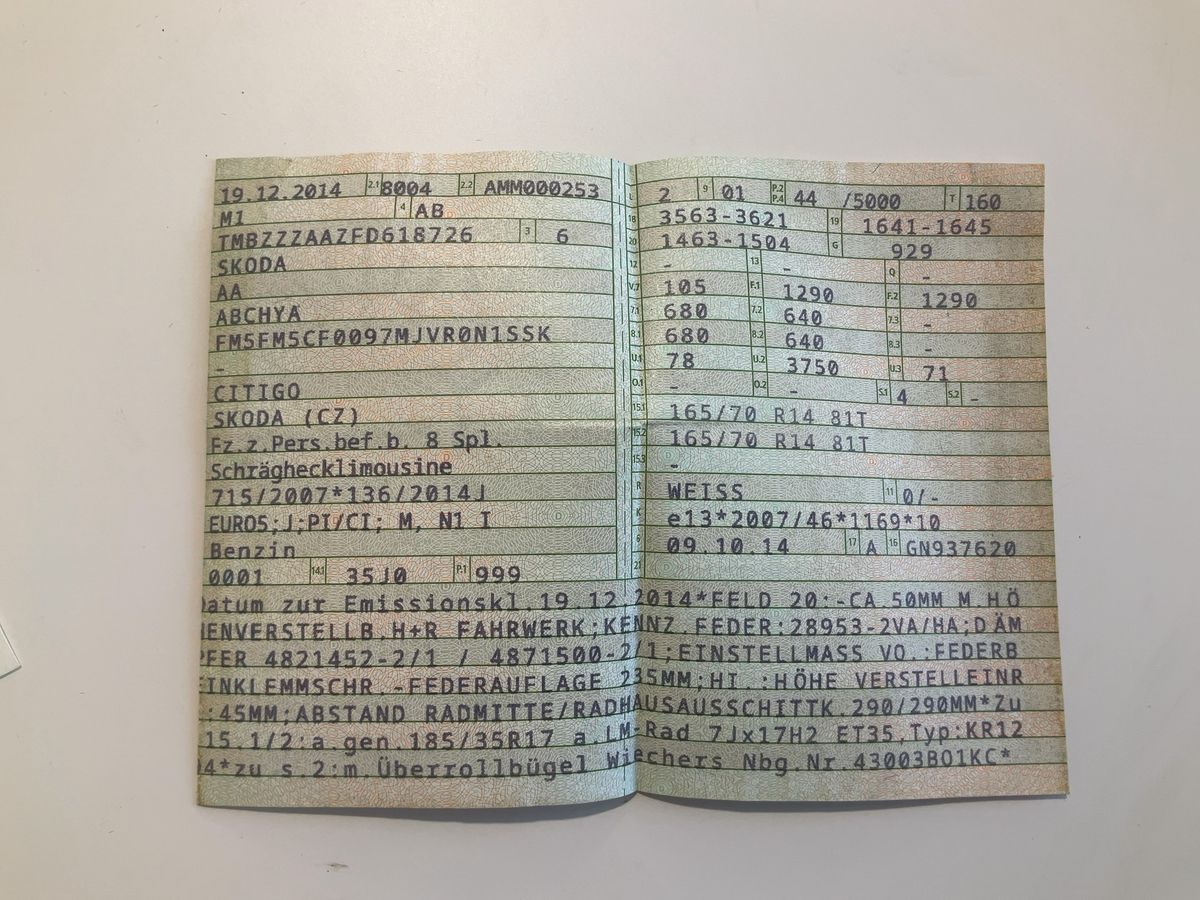 19.12.2014 2.1 8004 2.2 AMM000253
M1 4 AB
TMBZZZAAZFD618726 3 6
SKODA
AA
ABCHYA
FM5FM5CF0097MJVR0N1SSK
-
CITIGO
SKODA (CZ)
Fz.z.Pers.bef.b. 8 Spl.
Schräghecklimousine
715/2007*136/2014J
EURO5;J;PI/CI; M, N1 I
Benzin
0001 14.1 35J0 P.1 999
2 9 01 P.2 P.4 44 /5000 T 160
18 3563-3621 19 1641-1645
20 1463-1504 G 929
12 - 13 - Q -
V.7 105 F.1 1290 F.2 1290
7.1 680 7.2 640 7.3 -
8.1 680 8.2 640 8.3 -
U.1 78 U.2 3750 U.3 71
O.1 - O.2 - S.1 4 S.2 -
15.1 165/70 R14 81T
15.2 165/70 R14 81T
15.3 -
R WEISS 11 0/-
K e13*2007/46*1169*10
6 09.10.14 17 A 16 GN937620
21
Datum zur Emissionskl.19.12.2014*FELD 20:-CA.50MM M.HÖ
HENVERSTELLB.H+R FAHRWERK;KENNZ.FEDER:28953-2VA/HA;DÄM
PFER 4821452-2/1 / 4871500-2/1;EINSTELLMASS VO.:FEDERB
EINKLEMMSCHR.-FEDERAUFLAGE 235MM;HI.:HÖHE VERSTELLEINR
.:45MM;ABSTAND RADMITTE/RADHAUSAUSSCHITTK.290/290MM*Zu
15.1/2:a.gen.185/35R17 a.LM-Rad 7Jx17H2 ET35,Typ:KR12
04*zu s.2:m.Überrollbügel Wiechers Nbg.Nr.43003B01KC*